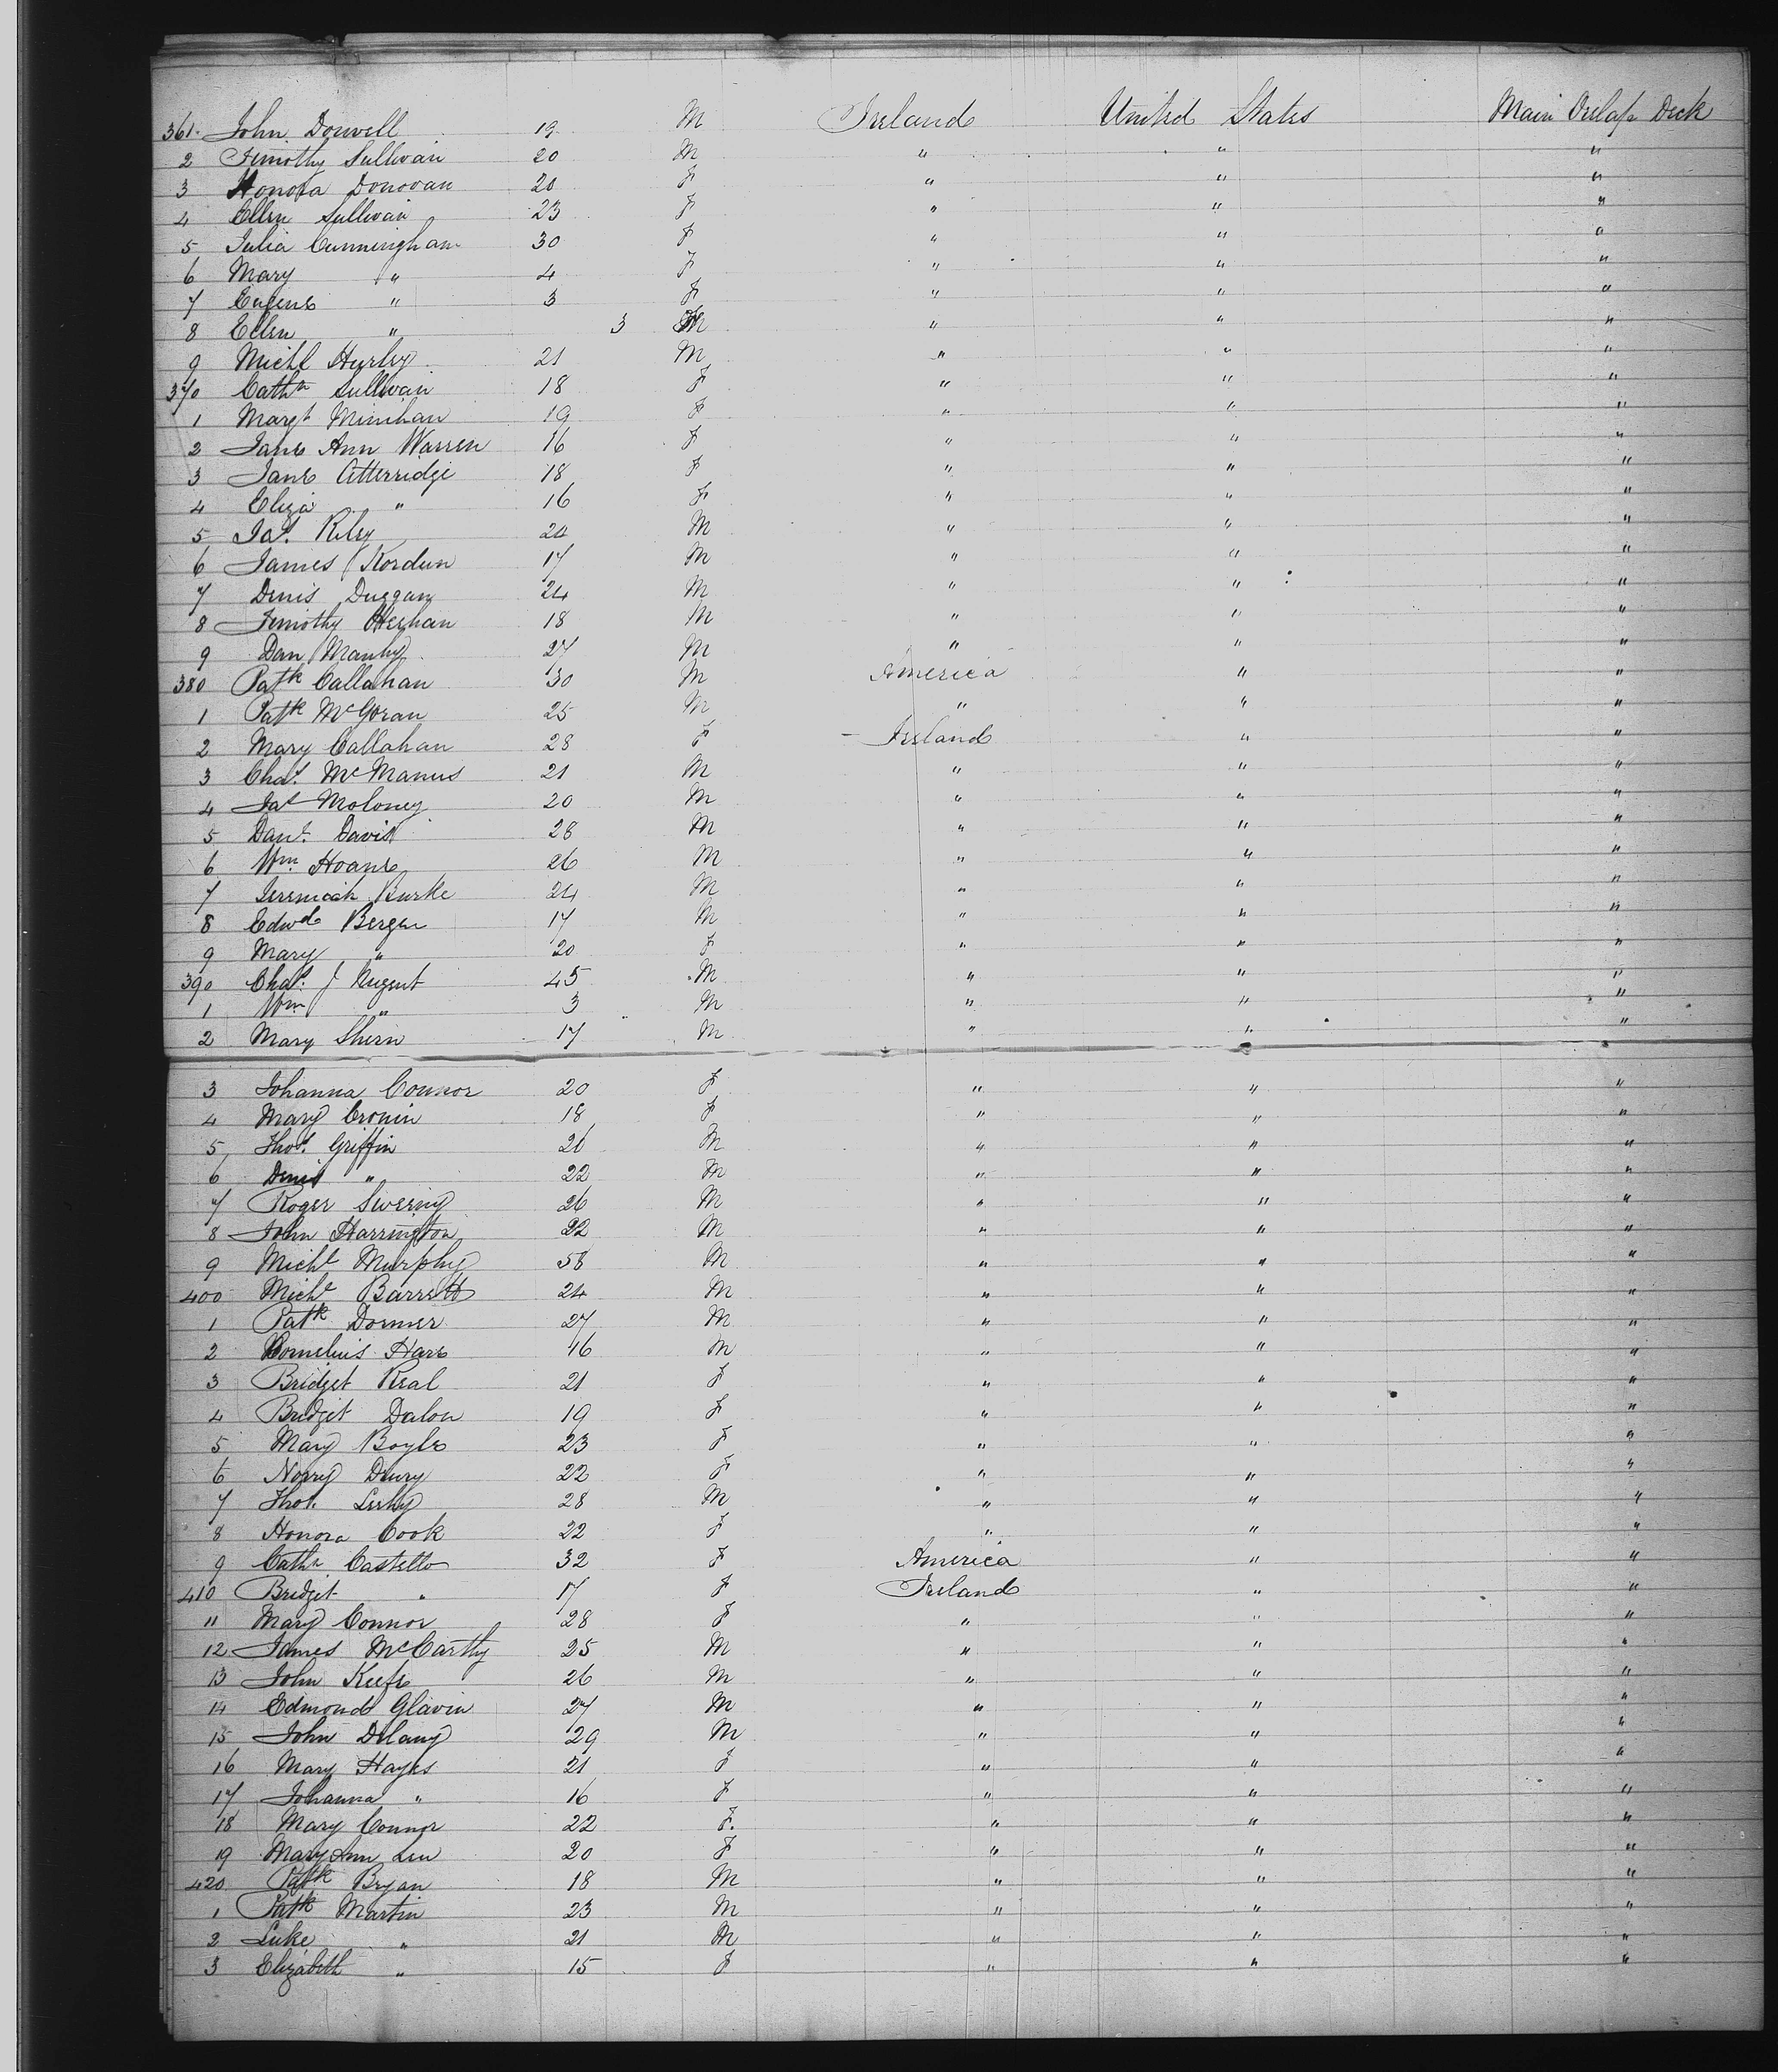 361. John Donvell 19 M Ireland United States Main Orlap Deck
2 Timothy Sullivan 20 M " " "
3 Honora Donovan 20 F " " "
4 Ellen Sullivan 23 F " " "
5 Julia Cunningham 30 F " " "
6 Mary " 4 F " " "
7 Eugene " 3 F " " "
8 Ellen " 3 M " " "
9 Michl Hurley 21 M " " "
370 Cathn Sullivan 18 F " " "
1 Margt Minihan 19 F " " "
2 Jane Ann Warren 16 F " " "
3 Jane Atterridge 18 F " " "
4 Eliza " 16 F " " "
5 Jas. Riley 24 M " " "
6 James Kordun 17 M " " "
7 Denis Duggan 24 M " " "
8 Timothy 18 M " " "
9 Dan Manly 27 M " " "
380 Patk Callahan 30 M America " "
1 Patk McGoran 25 M " " "
2 Mary Callahan 28 F Ireland " "
3 Chas. McManus 21 M " " "
4 Jas Moloney 20 M " " "
5 Danl. Davis 28 M " " "
6 Wm. Hoane 26 M " " "
7 Jeremiah Burke 24 M " " "
8 Edwd Bergen 17 M " " "
9 Mary " 20 F " " "
390 Chas. J Nugent 45 M " " "
1 Wm " 3 M " " "
2 Mary Shern 17 M " " "
3 Johanna Connor 20 F " " "
4 Mary Cronin 18 F " " "
5 Thos. Griffin 26 M " " "
6 Denis " 22 M " " "
7 Roger Sweeny 26 M " " "
8 John Harrington 22 M " " "
9 Michl Murphy 58 M " " "
400 Michl Barrett 24 M " " "
1 Patk Dormer 27 M " " "
2 Cornelius Hare 46 M " " "
3 Bridget Real 21 F " " "
4 Bridget Dalon 19 F " " "
5 Mary Boyle 23 F " " "
6 Norry Drury 22 F " " "
7 Thos. Leehy 28 M " " "
8 Honora Cook 22 F " " "
9 Cathn Castello 32 F America " "
410 Bridget " 17 F Ireland " "
11 Mary Connor 28 F " " "
12 James McCarthy 25 M " " "
13 John Keefe 26 M " " "
14 Edmond Glavin 27 M " " "
15 John Delany 29 M " " "
16 Mary Hayes 21 F " " "
17 Johanna " 16 F " " "
18 Mary Connor 22 F. " " "
19 Mary Ann Lee 20 F " " "
420 Patk Bryan 18 M " " "
1 Patk Martin 23 M " " "
2 Luke " 21 M " " "
3 Elizabeth " 15 F " " "